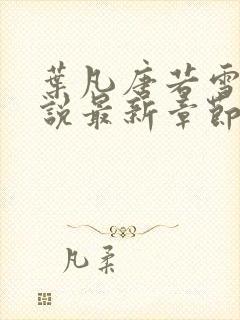 葉凡唐若雪
說最新章節
凡柔